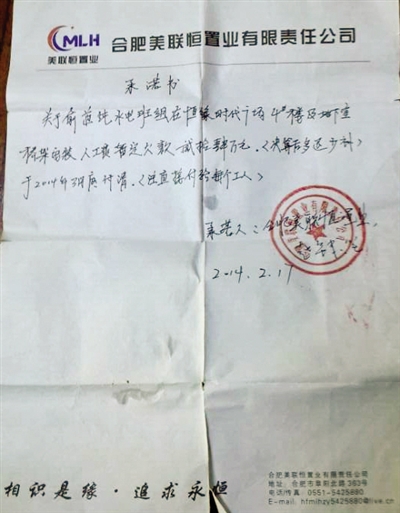 CMLH
美联恒置业
合肥美联恒置业有限责任公司
承诺书
关于俞 水电班组在恒缘时代广场4#楼及地下室
人工费暂定欠款 贰拾肆万元。(决算后多退少补)
于2014年3月底付清。(并直接付给每个工人)
承诺人:合肥美联恒置业
2014.2.17
相识是缘·追求永恒
合肥美联恒置业有限责任公司
地址:合肥市阜阳北路363号
电话/传真:0551-5425880
E-mail: hfmlhzy5425880@live.cn